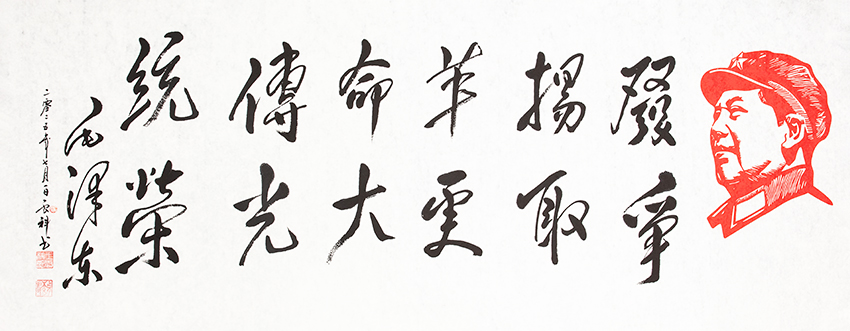 發揚革命傳統
爭取更大光榮
毛澤东
二零 五年七月 日 科书